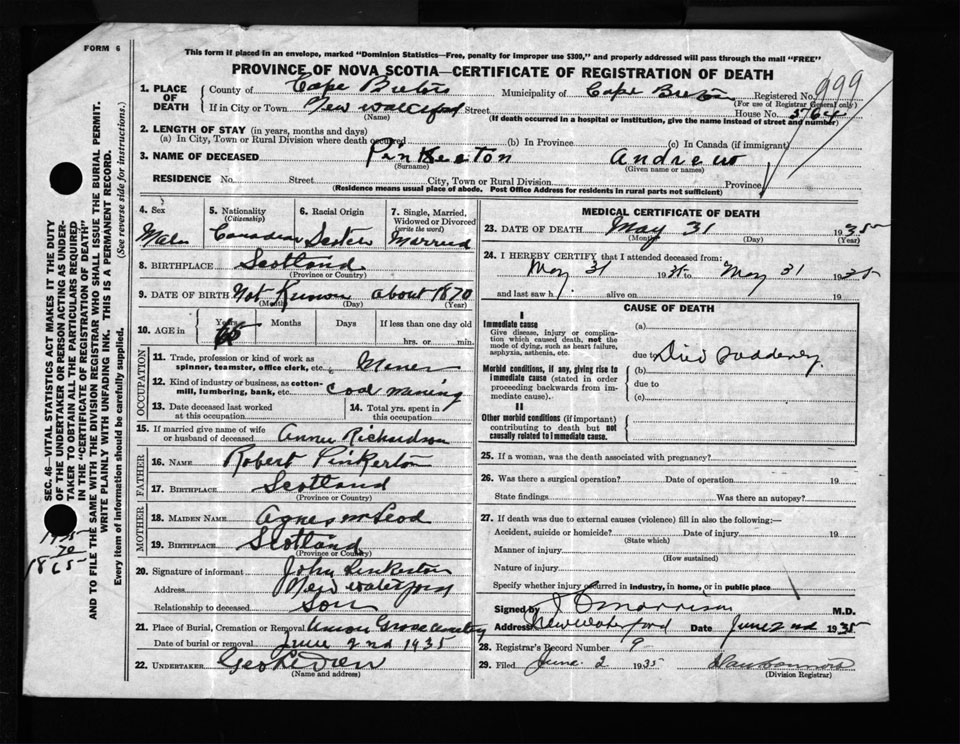 FORM 6
This form if placed in an envelope, marked "Dominion Statistics—Free, penalty for improper use $300," and properly addressed will pass through the mail "FREE"
PROVINCE OF NOVA SCOTIA—CERTIFICATE OF REGISTRATION OF DEATH
1. PLACE OF DEATH
County of Cape Breton Municipality of Cape Breton Registered No. 999
(For use of Registrar General only)
If in City or Town New Waterford Street House No. 5764
(Name) (If death occurred in a hospital or institution, give the name instead of street and number)
2. LENGTH OF STAY (in years, months and days)
(a) In City, Town or Rural Division where death occurred (b) In Province (c) In Canada (if immigrant)
3. NAME OF DECEASED Pinkerton Andrew
(Surname) (Given name or names)
RESIDENCE No. Street City, Town or Rural Division Province
(Residence means usual place of abode. Post Office Address for residents in rural parts not sufficient)
4. Sex 5. Nationality (Citizenship) 6. Racial Origin 7. Single, Married, Widowed or Divorced (write the word)
Male Canadian Married
8. BIRTHPLACE Scotland
(Province or Country)
9. DATE OF BIRTH Not Known about 1870
(Month) (Day) (Year)
10. AGE in Years Months Days If less than one day old
65 hrs. or min.
OCCUPATION
11. Trade, profession or kind of work as spinner, teamster, office clerk, etc. Miner
12. Kind of industry or business, as cotton-mill, lumbering, bank, etc. Coal Mining
13. Date deceased last worked at this occupation 14. Total yrs. spent in this occupation
15. If married give name of wife or husband of deceased Annie Richardson
FATHER
16. NAME Robert Pinkerton
17. BIRTHPLACE Scotland
(Province or Country)
MOTHER
18. MAIDEN NAME Agnes McLeod
19. BIRTHPLACE Scotland
(Province or Country)
20. Signature of informant John Pinkerton
Address New Waterford
Relationship to deceased Son
21. Place of Burial, Cremation or Removal Union Grove Cemetery
Date of burial or removal June 2nd 1935
22. UNDERTAKER
(Name and address)
MEDICAL CERTIFICATE OF DEATH
23. DATE OF DEATH May 31 1935
(Month) (Day) (Year)
24. I HEREBY CERTIFY that I attended deceased from:
May 31 19 to May 31 19
and last saw h alive on 19
CAUSE OF DEATH
I
Immediate cause
Give disease, injury or complication which caused death, not the mode of dying, such as heart failure, asphyxia, asthenia, etc.
(a)
due to Died suddenly
Morbid conditions, if any, giving rise to immediate cause (stated in order proceeding backwards from immediate cause).
(b)
due to
(c)
II
Other morbid conditions (if important) contributing to death but not causally related to immediate cause.
25. If a woman, was the death associated with pregnancy?
26. Was there a surgical operation? Date of operation 19
State findings Was there an autopsy?
27. If death was due to external causes (violence) fill in also the following:—
Accident, suicide or homicide? Date of injury 19
(State which)
Manner of injury
(How sustained)
Nature of injury
Specify whether injury occurred in industry, in home, or in public place
Signed by Morrison M.D.
Address New Waterford Date June 2nd 1935
28. Registrar's Record Number 9
29. Filed June 2 1935
(Division Registrar)
SEC. 46—VITAL STATISTICS ACT MAKES IT THE DUTY
OF THE UNDERTAKER OR PERSON ACTING AS UNDER-
TAKER TO OBTAIN ALL THE PARTICULARS REQUIRED
IN THE "CERTIFICATE OF REGISTRATION OF DEATH"
AND TO FILE THE SAME WITH THE DIVISION REGISTRAR WHO SHALL ISSUE THE BURIAL PERMIT.
WRITE PLAINLY WITH UNFADING INK. THIS IS A PERMANENT RECORD.
Every item of information should be carefully supplied. (See reverse side for instructions.)
1935
70
1865